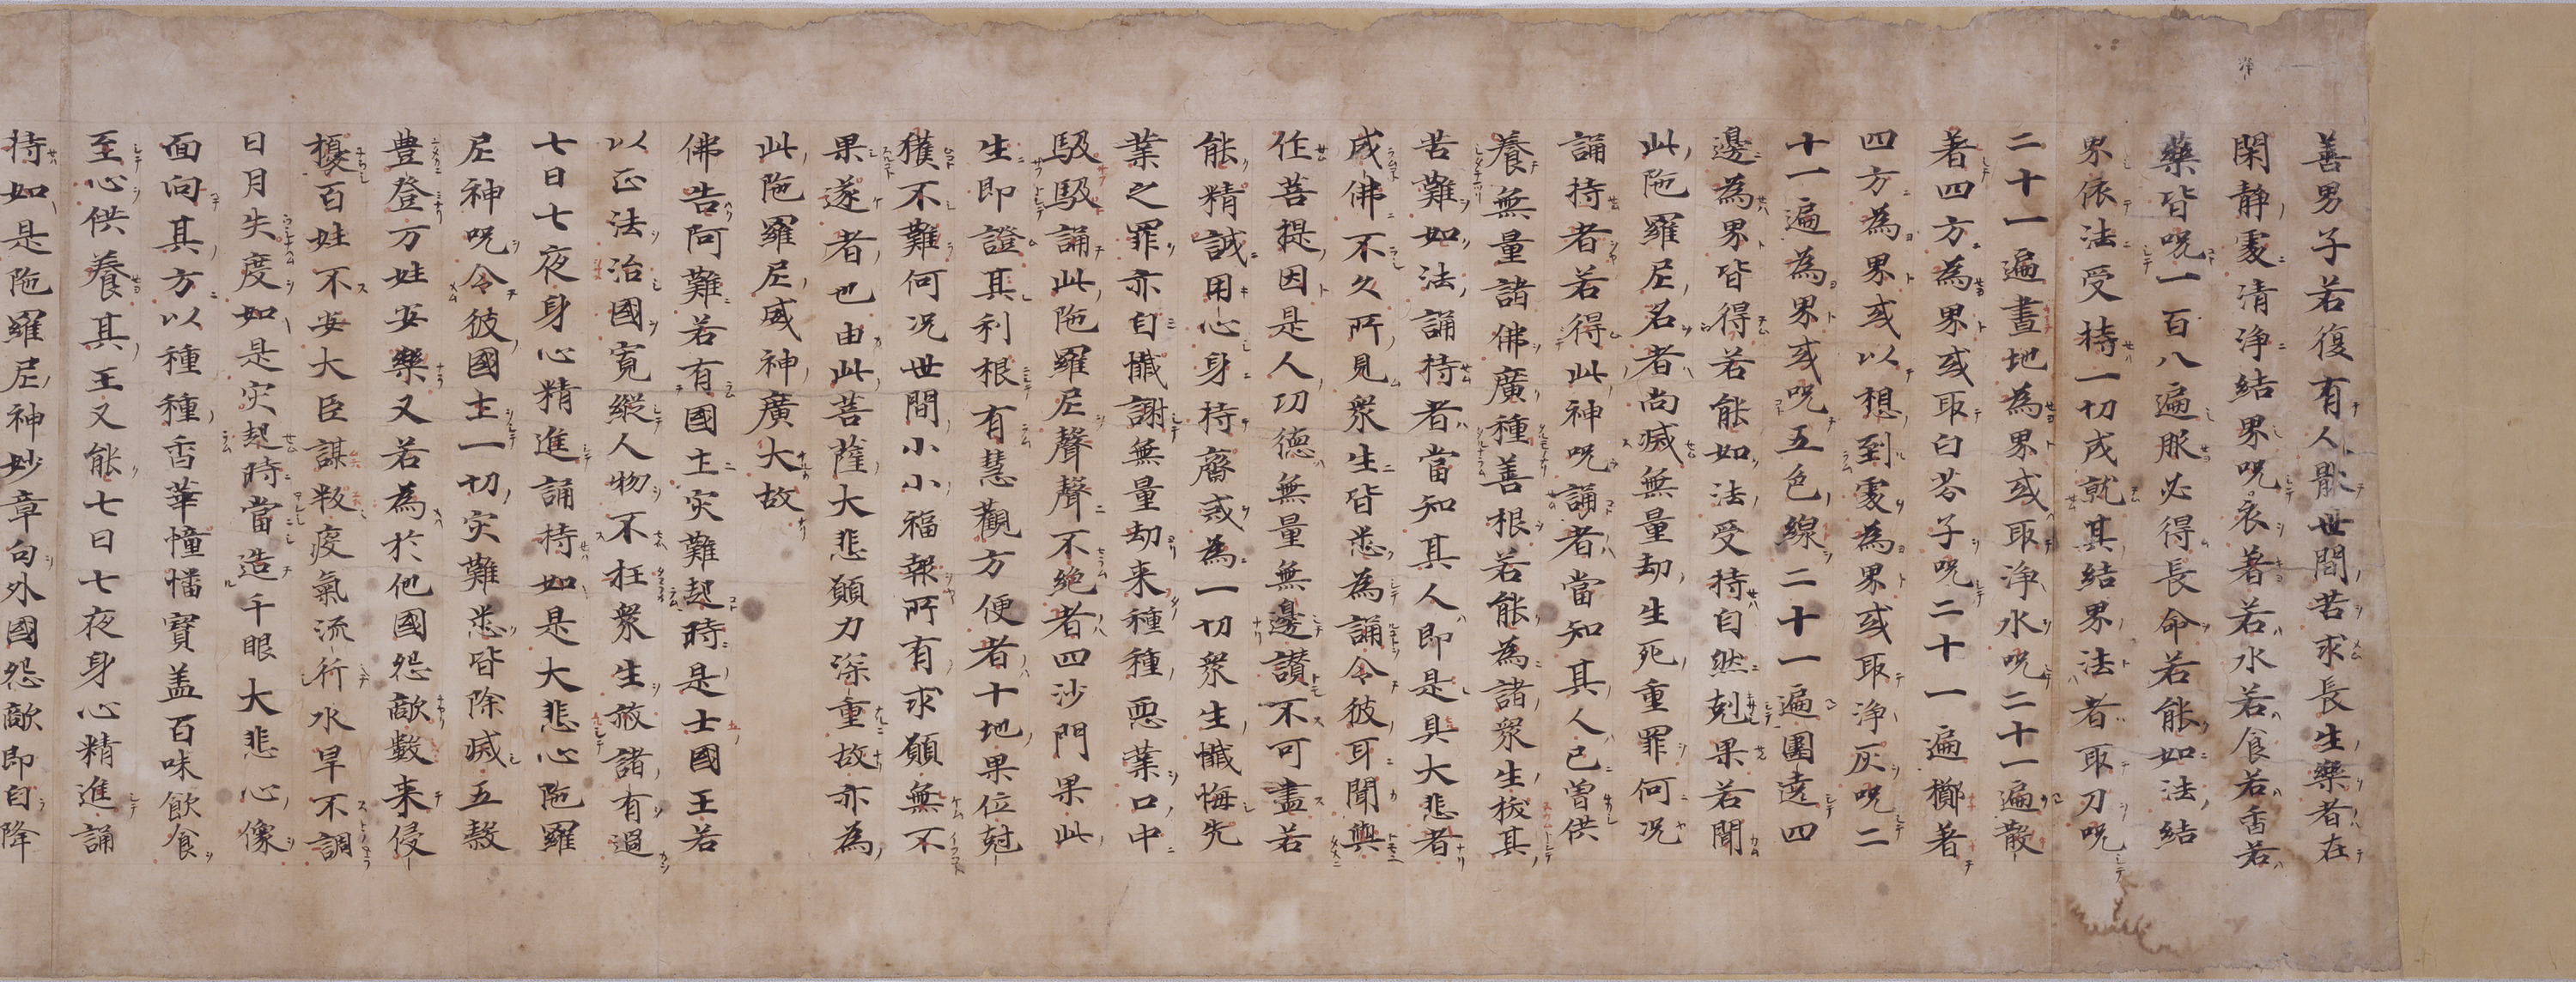 善男子若復有人猒世間苦求長生樂者在
閑静處清淨結界呪衣著若水若食若香若
藥皆呪一百八遍服必得長命若能如法結
界依法受持一切成就其結界法者取刀呪
二十一遍畫地為界或取浄水呪二十一遍散
著四方為界或取白芥子呪二十一遍擲著
四方為界或以想到處為界或取浄灰呪二
十一遍為界或呪五色線二十一遍圍遶四
邊為界皆得若能如法受持自然剋果若聞
此陁羅尼名者尚滅無量劫生死重罪何况
誦持者若得此神呪誦者當知其人已曾供
養無量諸佛廣種善根若能為諸衆生拔其
苦難如法誦持者當知其人即是具大悲者
成佛不久所見衆生皆悉為誦令彼耳聞與
作菩提因是人功德無量無邊讃不可盡若
能精誠用心身持齋戒為一切衆生懺悔先
業之罪亦自懺謝無量劫来種種惡業口中
馺馺誦此陁羅尼聲聲不絶者四沙門果此
生即證其利根有慧觀方便者十地果位尅
獲不難何况世間小小福報所有求願無不
果遂者也由此菩薩大悲願力深重故亦為
此陁羅尼威神廣大故
佛告阿難若有國土灾難起時是土國王若
以正法治國寛縱人物不枉衆生赦諸有過
七日七夜身心精進誦持如是大悲心陁羅
尼神呪令彼國土一切灾難悉皆除滅五穀
豊登万姓安樂又若為於他國怨敵數来侵
擾百姓不安大臣謀叛疫氣流行水旱不調
日月失度如是灾起時當造千眼大悲心像
面向其方以種種香華幢幡寳盖百味飲食
至心供養其王又能七日七夜身心精進誦
持如是陁羅尼神妙章句外國怨敵即自降